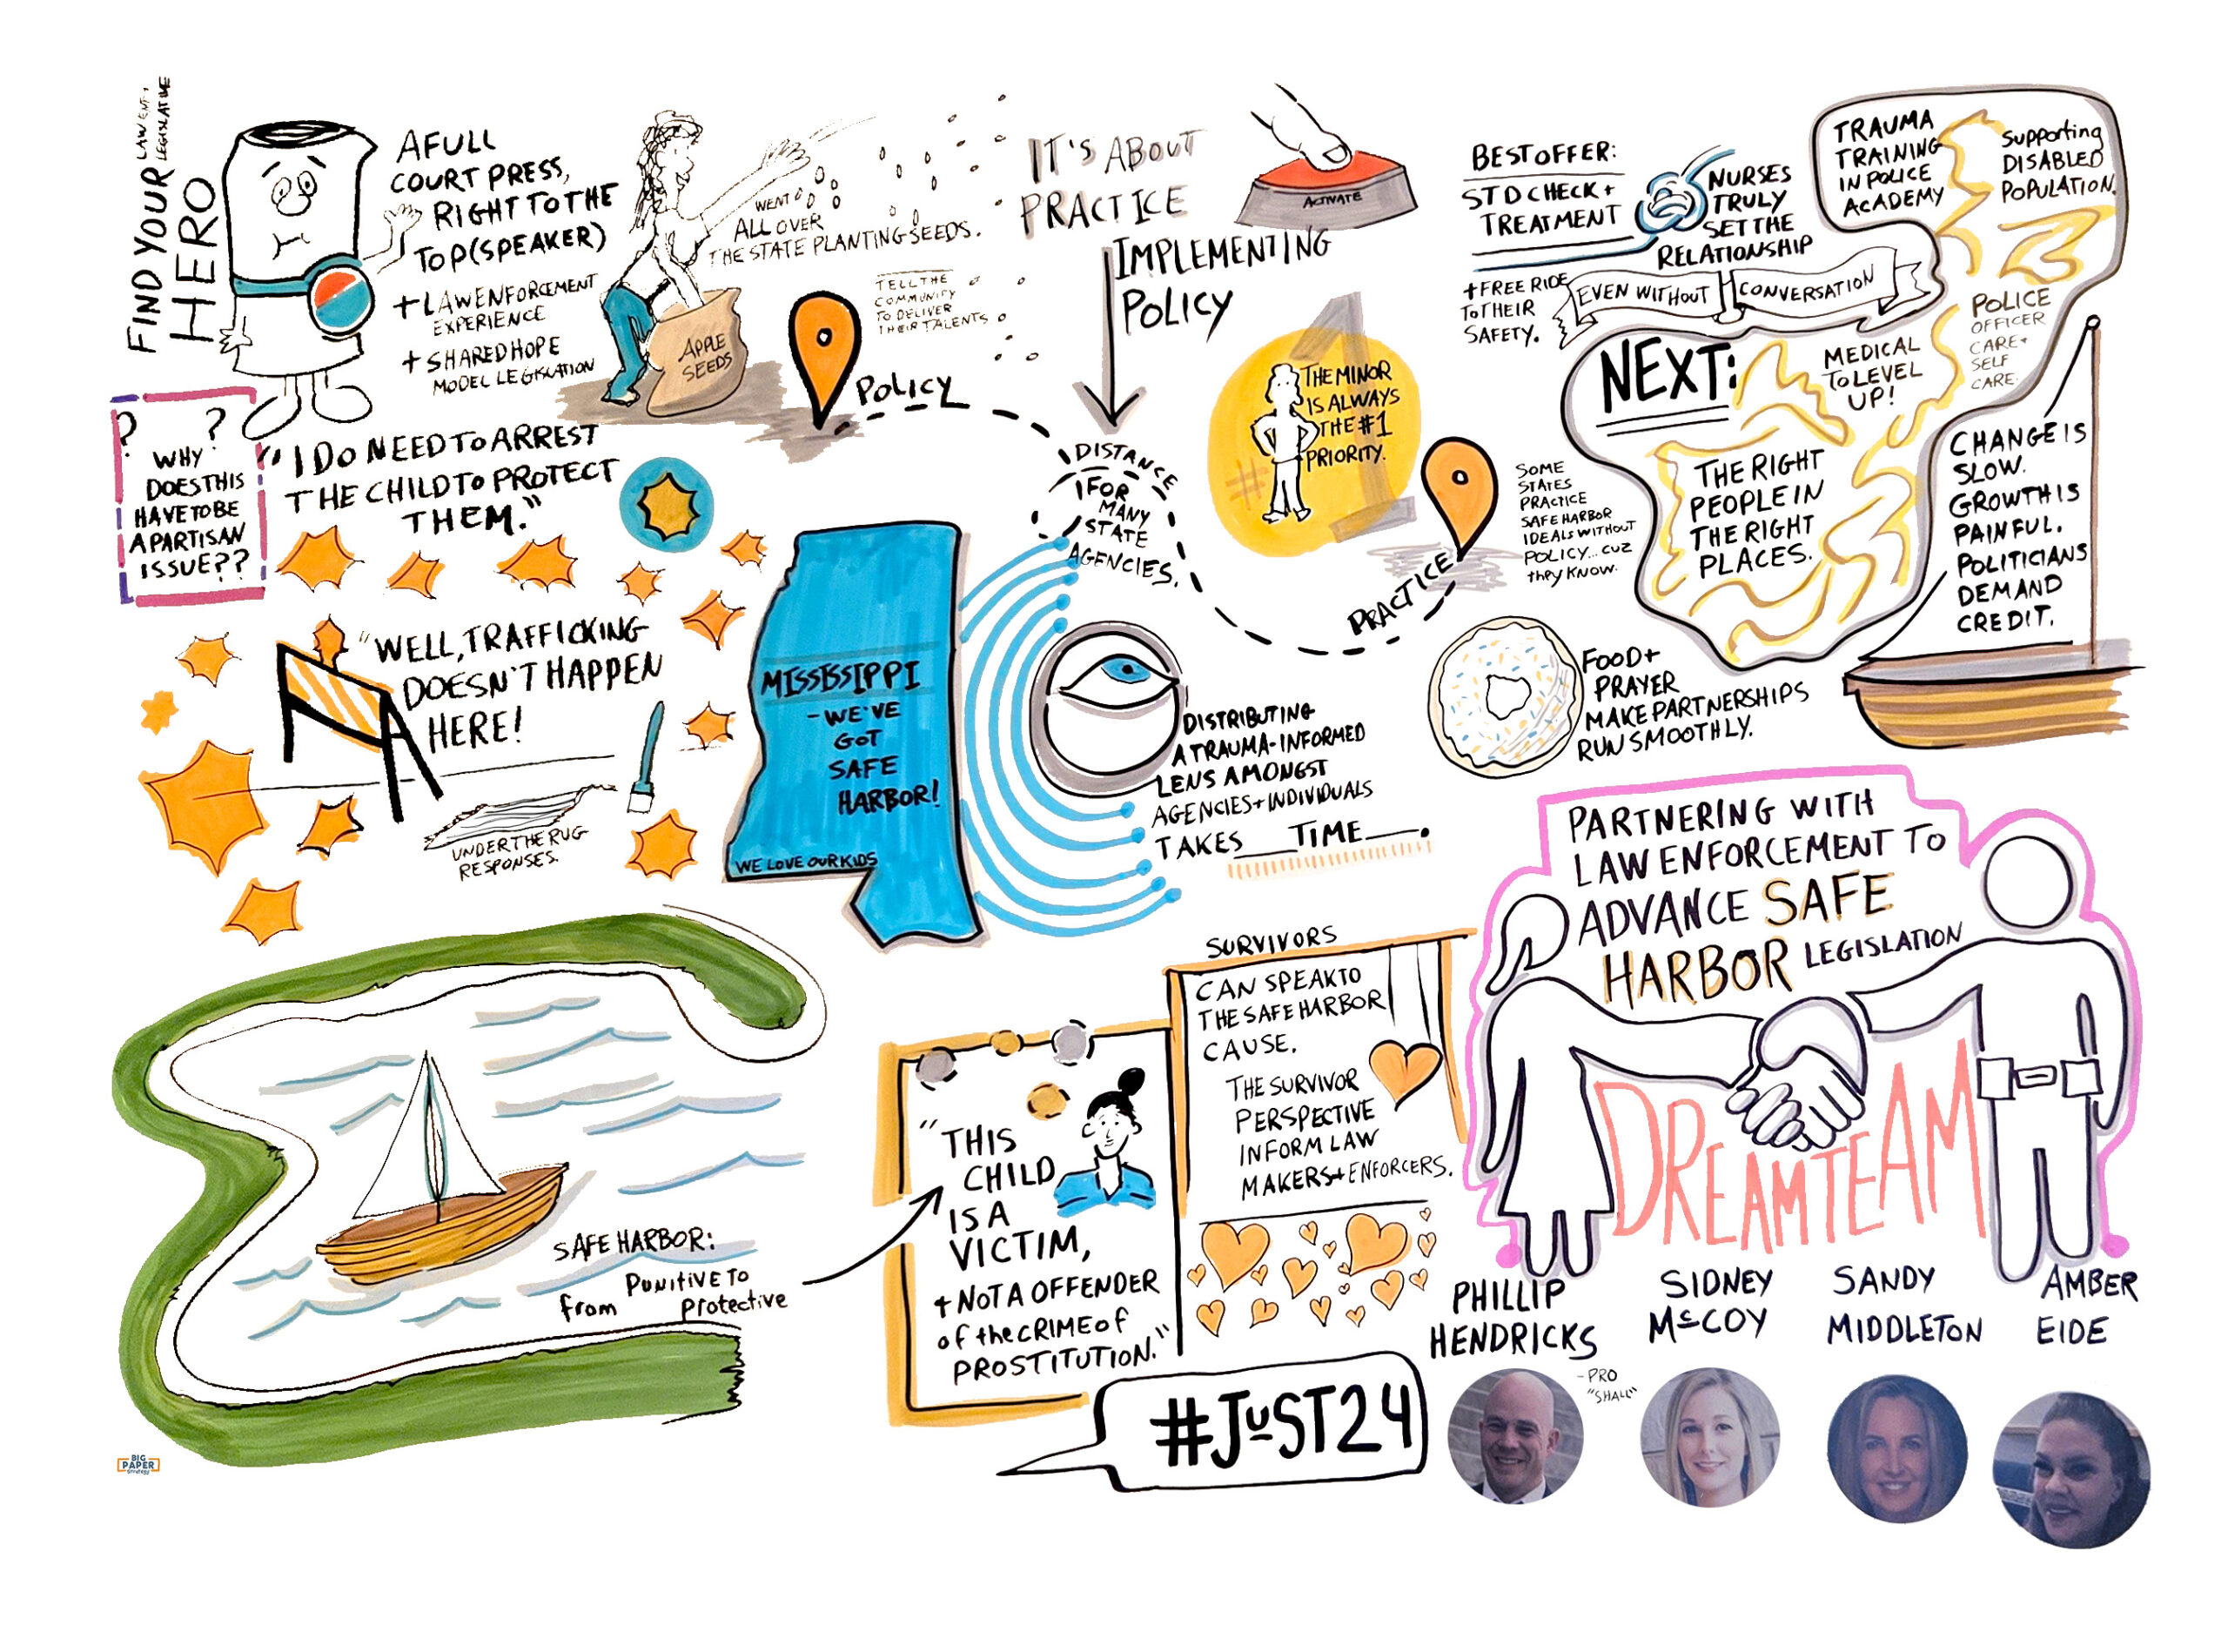 FIND YOUR
HERO
LAW ENF. +
LEGISLATIVE
A FULL
COURT PRESS,
RIGHT TO THE
TOP (SPEAKER)
+ LAW ENFORCEMENT
EXPERIENCE
+ SHARED HOPE
MODEL LEGISLATION
WENT
ALL OVER
THE STATE PLANTING SEEDS.
APPLE
SEEDS
TELL THE
COMMUNITY
TO DELIVER
THEIR TALENTS
POLICY
IT'S ABOUT
PRACTICE
IMPLEMENTING
POLICY
ACTIVATE
DISTANCE
FOR
MANY
STATE
AGENCIES.
#1
THE MINOR
IS ALWAYS
THE #1
PRIORITY.
PRACTICE
SOME
STATES
PRACTICE
SAFE HARBOR
IDEALS WITHOUT
POLICY... CUZ
they KNOW.
BEST OFFER:
STD CHECK +
TREATMENT
+ FREE RIDE
TO THEIR
SAFETY.
NURSES
TRULY
SET THE
RELATIONSHIP
EVEN WITHOUT CONVERSATION
TRAUMA
TRAINING
IN POLICE
ACADEMY
Supporting
DISABLED
POPULATION.
POLICE
OFFICER
CARE +
SELF
CARE.
NEXT:
MEDICAL
TO LEVEL
UP!
THE RIGHT
PEOPLE IN
THE RIGHT
PLACES.
CHANGE IS
SLOW.
GROWTH IS
PAINFUL.
POLITICIANS
DEMAND
CREDIT.
? ?
WHY
DOES THIS
HAVE TO BE
A PARTISAN
ISSUE??
"I DO NEED TO ARREST
THE CHILD TO PROTECT
THEM."
"WELL, TRAFFICKING
DOESN'T HAPPEN
HERE!
UNDER THE RUG
RESPONSES.
MISSISSIPPI
- WE'VE
GOT
SAFE
HARBOR!
WE LOVE OUR KIDS
DISTRIBUTING
A TRAUMA-INFORMED
LENS AMONGST
AGENCIES + INDIVIDUALS
TAKES TIME.
FOOD +
PRAYER
MAKE PARTNERSHIPS
RUN SMOOTHLY.
PARTNERING WITH
LAW ENFORCEMENT TO
ADVANCE SAFE
HARBOR LEGISLATION
DREAM TEAM
SURVIVORS
CAN SPEAK TO
THE SAFE HARBOR
CAUSE.
THE SURVIVOR
PERSPECTIVE
INFORM LAW
MAKERS + ENFORCERS.
"THIS
CHILD
IS A
VICTIM,
+ NOT A OFFENDER
of the CRIME of
PROSTITUTION."
SAFE HARBOR:
from PUNITIVE TO
Protective
#JuST24
PHILLIP
HENDRICKS
- PRO
"SHALL"
SIDNEY
McCOY
SANDY
MIDDLETON
AMBER
EIDE
BIG
PAPER
strategy